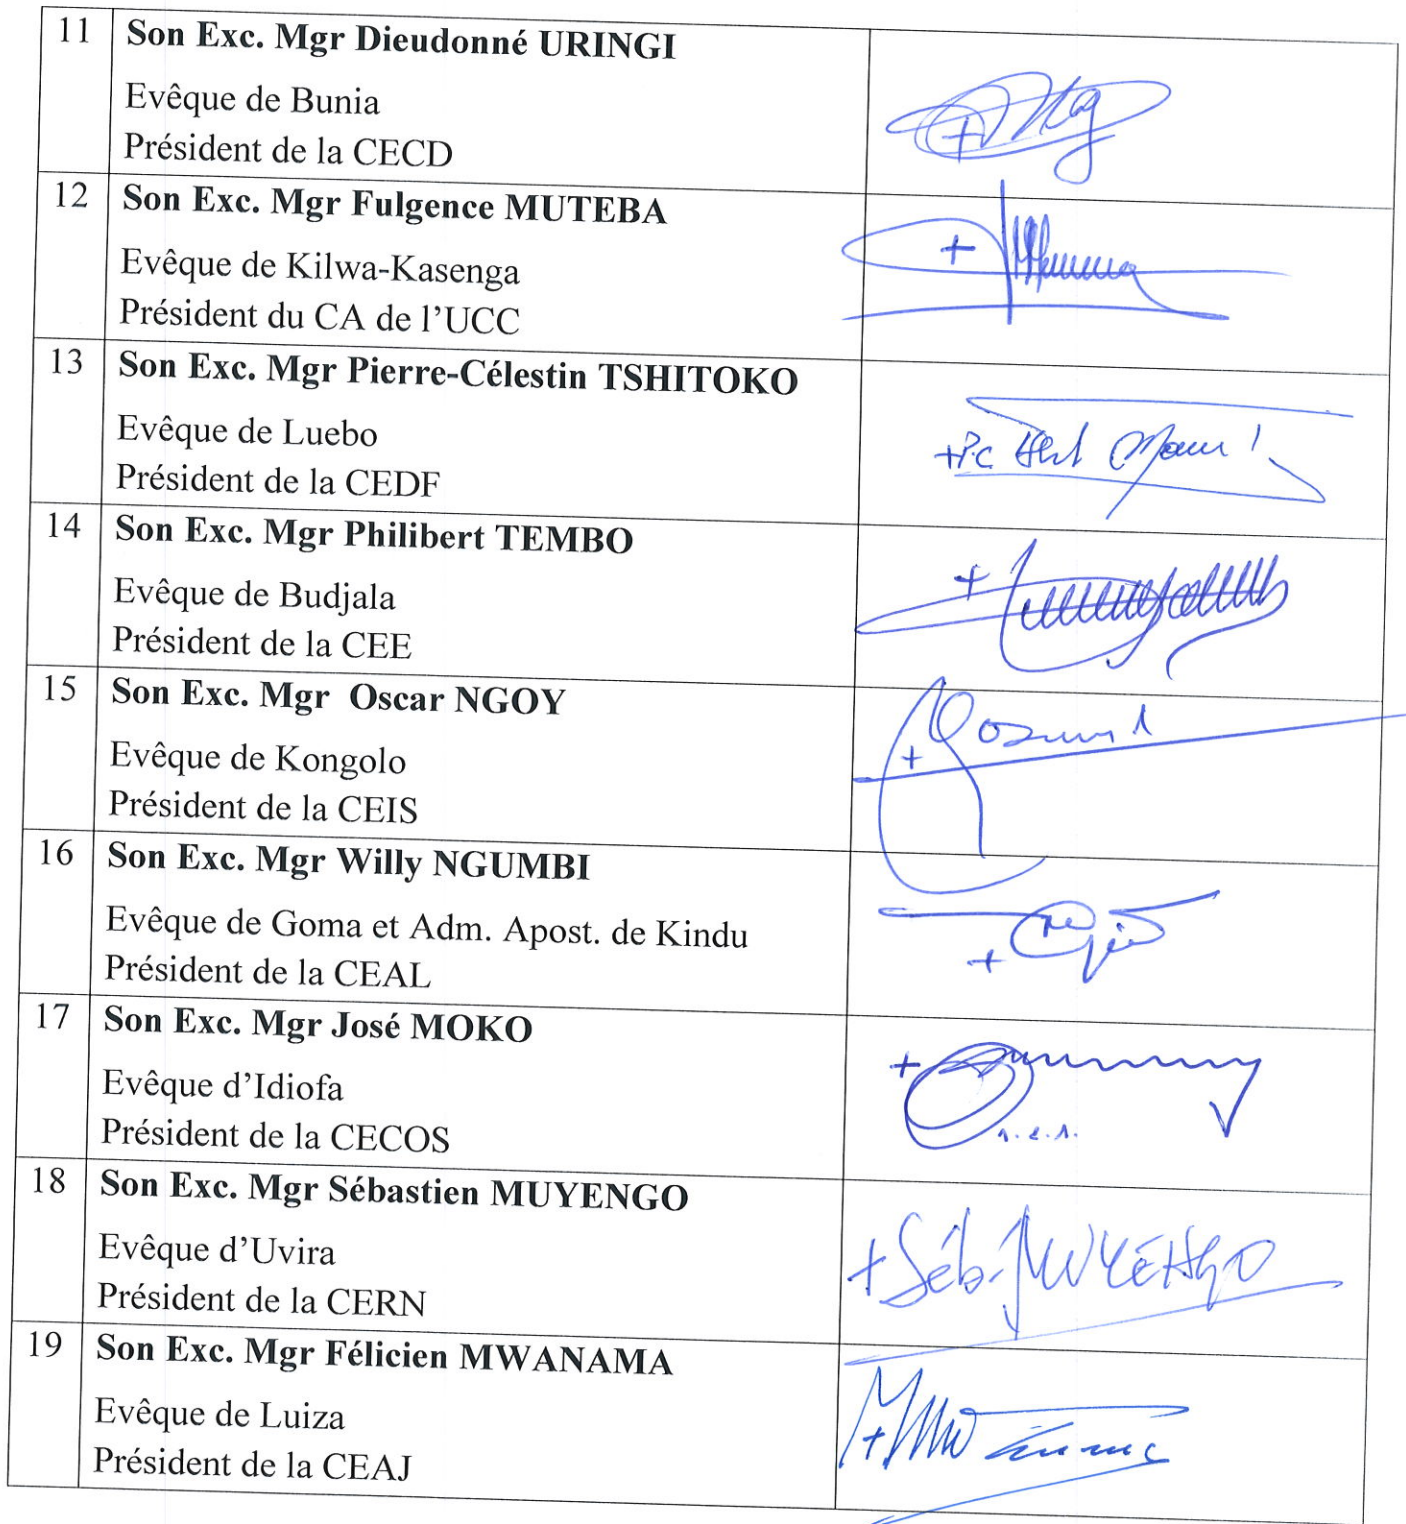 11 Son Exc. Mgr Dieudonné URINGI
Evêque de Bunia
Président de la CECD
12 Son Exc. Mgr Fulgence MUTEBA
Evêque de Kilwa-Kasenga
Président du CA de l’UCC
13 Son Exc. Mgr Pierre-Célestin TSHITOKO
Evêque de Luebo
Président de la CEDF
14 Son Exc. Mgr Philibert TEMBO
Evêque de Budjala
Président de la CEE
15 Son Exc. Mgr Oscar NGOY
Evêque de Kongolo
Président de la CEIS
16 Son Exc. Mgr Willy NGUMBI
Evêque de Goma et Adm. Apost. de Kindu
Président de la CEAL
17 Son Exc. Mgr José MOKO
Evêque d’Idiofa
Président de la CECOS
18 Son Exc. Mgr Sébastien MUYENGO
+ Séb. MUYENGO
Evêque d’Uvira
Président de la CERN
19 Son Exc. Mgr Félicien MWANAMA
Evêque de Luiza
Président de la CEAJ